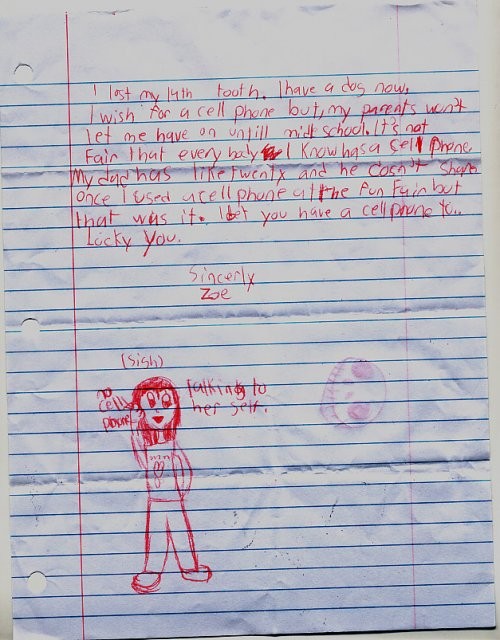 I lost my 14th tooth. I have a dog now.
I wish for a cell phone but, my parents won't
let me have on untill midt school. It's not
Fair that every body I Know has a cell Phone.
My dad has like twenty and he dosn't share
once I used a cell phone at the Fun Fair but
that was it. I bet you have a cell phone to..
Lucky You.
Sincerly
Zoe
(Sigh)
no
cell
phone
talking to
her self.